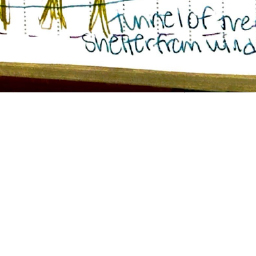 Tunnel of tre
Shelter from wind